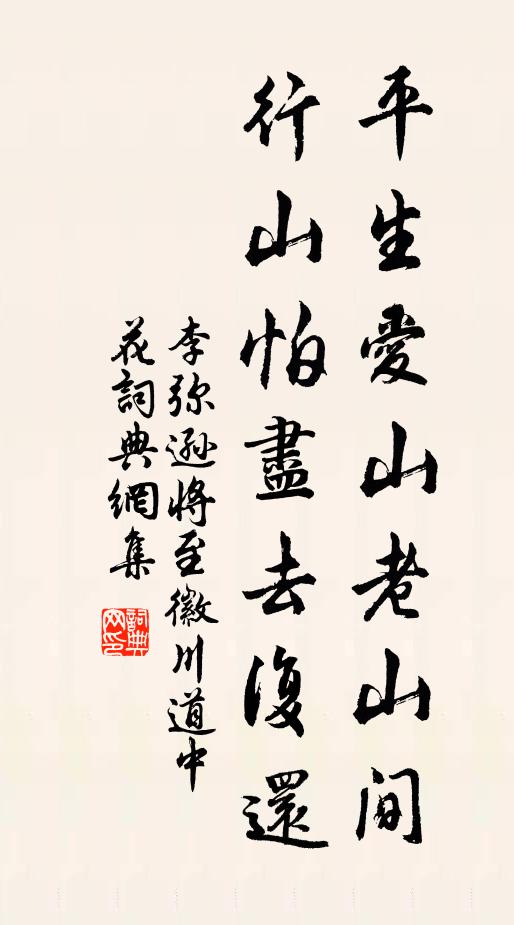 平生愛山老山間
行山怕盡去復還
李弥遜將至徽川道中
花詞典網集
詞典
网印